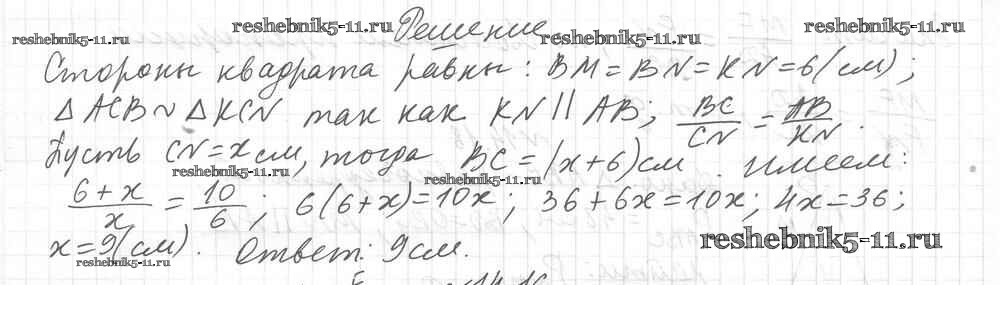 Решение
Стороны квадрата равны: BM = BN = KN = 6(см);
△ACB ~ △KCN так как KN || AB; BC/CN = AB/KN.
Пусть CN = x см, тогда BC = (x+6) см. имеем:
6+x/x = 10/6; 6(6+x) = 10x; 36+6x = 10x; 4x = 36;
x = 9(см). Ответ: 9 см.
reshebnik5-11.ru
reshebnik5-11.ru
reshebnik5-11.ru
reshebnik5-11.ru
reshebnik5-11.ru
reshebnik5-11.ru
reshebnik5-11.ru
reshebnik5-11.ru